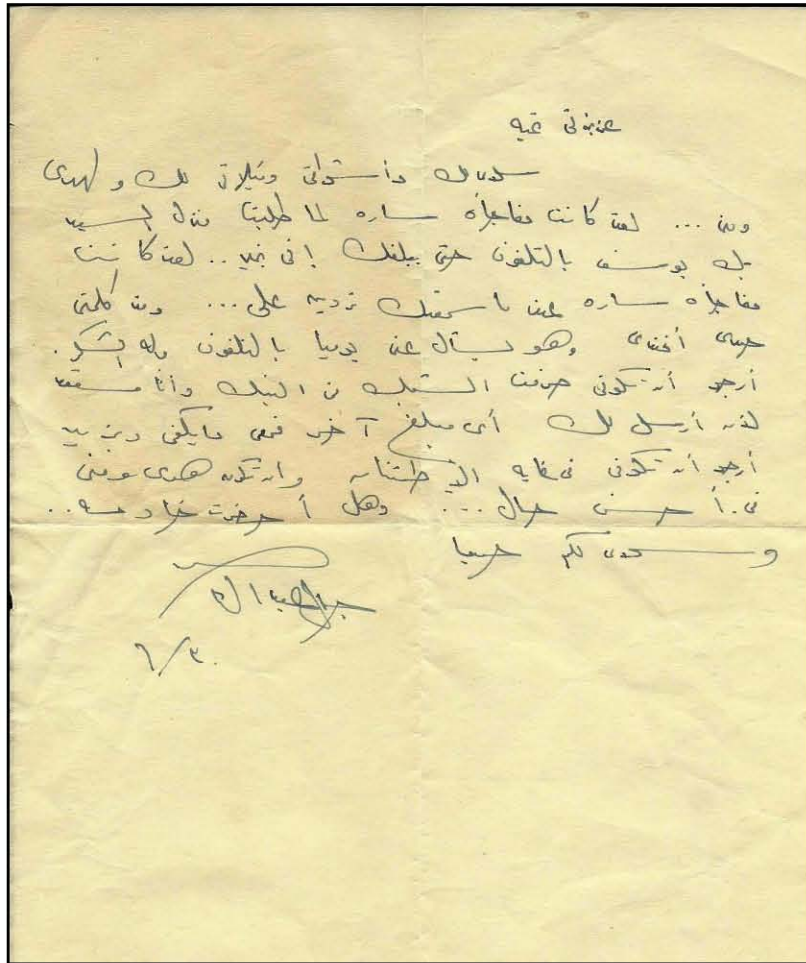 عزيزتى تحيه
سلامى لك وأشواقى وقبلاتى لك و لهدى
ومنى ... لقد كانت مفاجأه ساره لما طلبتنا منزل السيد
بك يوسف بالتلفون حتى يبلغك إنى بخير .. لقد كانت
مفاجأه ساره عندما سمعتك تردين على ... وقد كلمنى
صبرى أفندى وهو يسأل عنى يوميا بالتلفون وله الشكر .
أرجو أن تكونى صرفت الشيك من البنك وأنا مستعد
لأن أرسل لك أى مبلغ آخر فمعى ما يكفى ويزيد
أرجو أن تكونى فى غايه الإطمئنان وان تكون هدى ومنى
فى أحسن حال ... وهل أحضرت خادمه ..
وسلامى لكم جميعا
جمال عبد الناصر
٣٠/٦